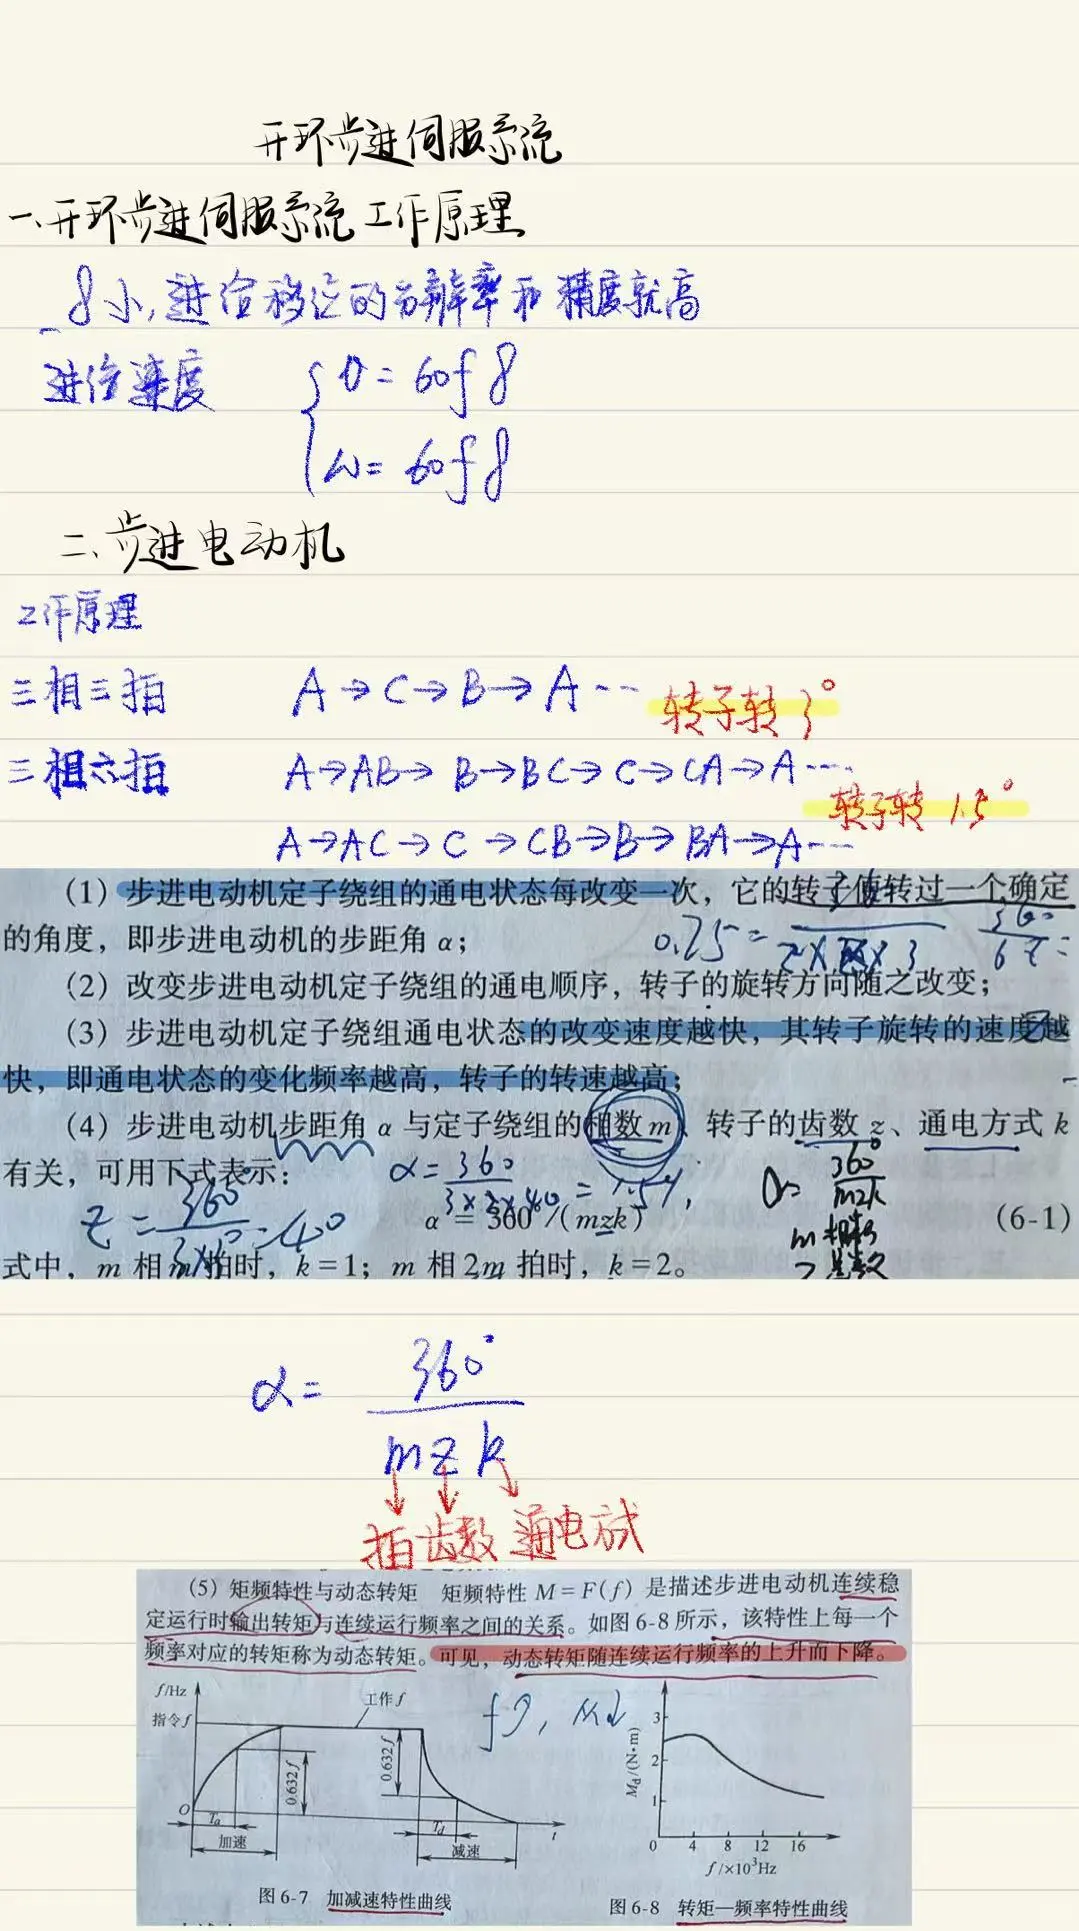 开环步进伺服系统
一、开环步进伺服系统工作原理
δ小,进给移位的分辨率和精度就高
进给速度 { υ = 60fδ
ω = 60fδ
二、步进电动机
工作原理
三相三拍 A→C→B→A… 转子转3°
三相六拍 A→AB→B→BC→C→CA→A…
转子转1.5°
A→AC→C→CB→B→BA→A…
(1) 步进电动机定子绕组的通电状态每改变一次,它的转子便转过一个确定
的角度,即步进电动机的步距角 α;
0.75=
(2) 改变步进电动机定子绕组的通电顺序,转子的旋转方向随之改变;
(3) 步进电动机定子绕组通电状态的改变速度越快,其转子旋转的速度越
快,即通电状态的变化频率越高,转子的转速越高;
(4) 步进电动机步距角 α 与定子绕组的相数 m、转子的齿数 z、通电方式 k
有关,可用下式表示:
α = 360°/(mzk) (6-1)
式中,m 相 m 拍时,k = 1;m 相 2m 拍时,k = 2。
α = 360°
mzk
拍 齿数 通电方式
(5) 矩频特性与动态转矩 矩频特性 M = F(f) 是描述步进电动机连续稳
定运行时输出转矩与连续运行频率之间的关系。如图 6-8 所示,该特性上每一个
频率对应的转矩称为动态转矩。可见,动态转矩随连续运行频率的上升而下降。
f/Hz
指令f
工作f
0.632f
0.632f
O
Ta
Td
t
加速
减速
图 6-7 加减速特性曲线
f↑, Md↓
Md/(N·m)
3
2
1
0 4 8 12 16
f/×10³Hz
图 6-8 转矩—频率特性曲线